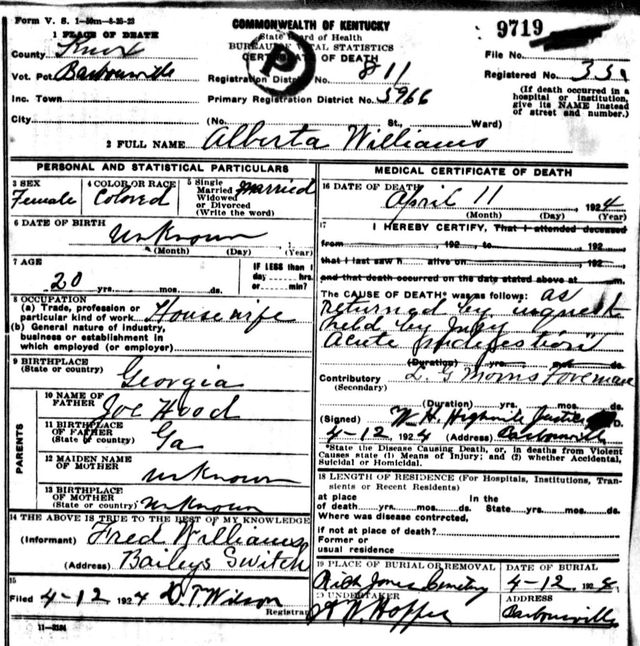 Form V. S. 1-50m-8-25-23
COMMONWEALTH OF KENTUCKY
State Board of Health
BUREAU OF VITAL STATISTICS
CERTIFICATE OF DEATH
9719
1 PLACE OF DEATH
County Knox
Vot. Pct. Barbourville
Inc. Town
City
File No.
Registered No.
Registration District No. 811
Primary Registration District No. 5966
(No. St., Ward)
(If death occurred in a hospital or institution, give its NAME instead of street and number.)
2 FULL NAME Alberta Williams
PERSONAL AND STATISTICAL PARTICULARS
3 SEX
Female
4 COLOR OR RACE
Colored
5 Single
Married
Widowed
or Divorced
(Write the word)
Married
6 DATE OF BIRTH
unknown
(Month) (Day) (Year)
7 AGE
20 yrs. mos. ds.
IF LESS than 1
day hrs.
or min.?
8 OCCUPATION
(a) Trade, profession or
particular kind of work Housewife
(b) General nature of industry,
business or establishment in
which employed (or employer)
9 BIRTHPLACE
(State or country)
Georgia
PARENTS
10 NAME OF
FATHER
Joe Hood
11 BIRTHPLACE
OF FATHER
(State or country)
Ga
12 MAIDEN NAME
OF MOTHER
unknown
13 BIRTHPLACE
OF MOTHER
(State or country)
unknown
14 THE ABOVE IS TRUE TO THE BEST OF MY KNOWLEDGE
(Informant) Fred Williams
(Address) Baileys Switch
15
Filed 4-12 1924 D.T. Wilson
Registrar
11-3184
MEDICAL CERTIFICATE OF DEATH
16 DATE OF DEATH
April 11 1924
(Month) (Day) (Year)
17 I HEREBY CERTIFY, That I attended deceased
from , 192 , to , 192 ,
that I last saw h alive on , 192 ,
and that death occurred on the date stated above at m.
The CAUSE OF DEATH* was as follows: as
returned by inquest
held by Jury
"Acute Indigestion"
(Duration) yrs. mos. ds.
Contributory L. G. Morris Foreman
(Secondary)
(Duration) yrs. mos. ds.
(Signed) W. H.
4-12 1924 (Address) Barbourville
*State the Disease Causing Death, or, in deaths from Violent
Causes state (1) Means of Injury; and (2) whether Accidental,
Suicidal or Homicidal.
18 LENGTH OF RESIDENCE (For Hospitals, Institutions, Transients or Recent Residents)
at place In the
of death yrs. mos. ds. State yrs. mos. ds.
Where was disease contrected,
if not at place of death?
Former or
usual residence
19 PLACE OF BURIAL OR REMOVAL
Rich Jones Cemetery
DATE OF BURIAL
4-12 1924
20 UNDERTAKER
ADDRESS
Barbourville